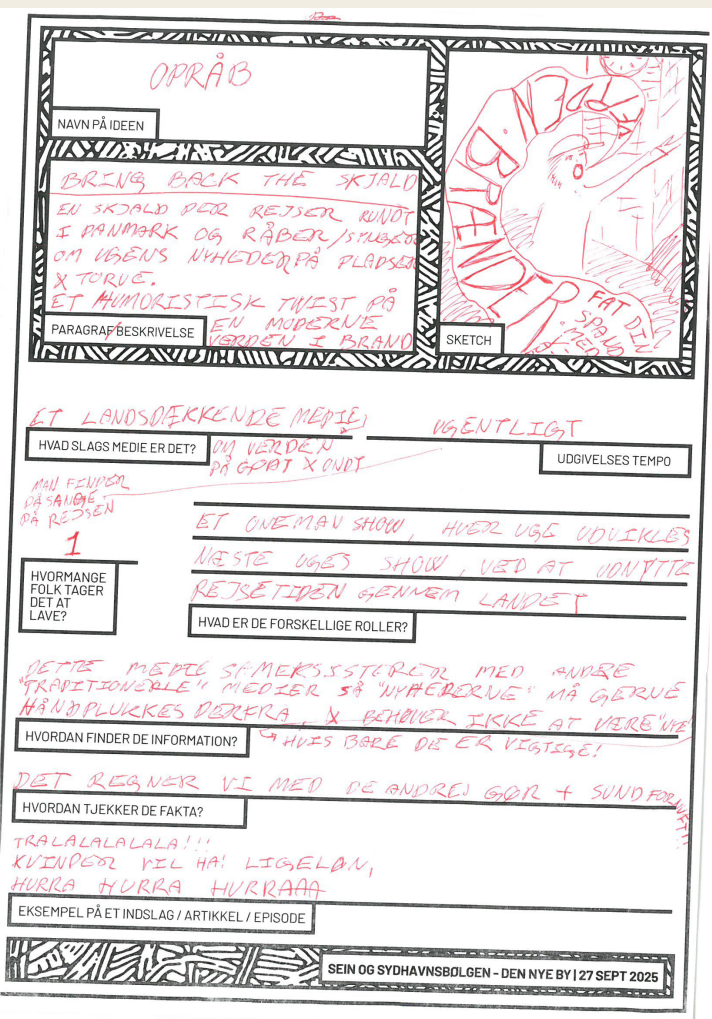 OPRÅB
NAVN PÅ IDEEN
BRING BACK THE SKJALD
EN SKJALD DER REJSER RUNDT
I DANMARK OG RÅBER/SYNGER
OM UGENS NYHEDER PÅ PLADSER
X TORVE.
ET HUMORISTISK TWIST PÅ
EN MODERNE
VERDEN I BRAND
PARAGRAF/BESKRIVELSE
VERDEN
BRÆNDER
FAT DIN
SPAND
MED
SKETCH
ET LANDSDÆKKENDE MEDIE,
OM VERDEN
PÅ GODT X ONDT
HVAD SLAGS MEDIE ER DET?
UGENTLIGT
UDGIVELSES TEMPO
MAN FINDER
PÅ SANGE
PÅ REJSEN
1
HVORMANGE
FOLK TAGER
DET AT
LAVE?
ET ONEMAN SHOW, HVER UGE UDVIKLES
NÆSTE UGES SHOW, VED AT UDNYTTE
REJSETIDEN GENNEM LANDET
HVAD ER DE FORSKELLIGE ROLLER?
DETTE MEDIE SAMEKSISTERER MED ANDRE
"TRADITIONELLE" MEDIER SÅ "NYHEDERNE" MÅ GERNE
HÅNDPLUKKES DERFRA, X BEHØVER IKKE AT VÆRE "NYE"
HVIS BARE DE ER VIGTIGE!
HVORDAN FINDER DE INFORMATION?
DET REGNER VI MED DE ANDRE GØR + SUND FORNUFT!!
HVORDAN TJEKKER DE FAKTA?
TRALALALALALA!!!
KVINDER VIL HA! LIGELØN,
HURRA HURRA HURRAAA
EKSEMPEL PÅ ET INDSLAG / ARTIKKEL / EPISODE
SEIN OG SYDHAVNSBØLGEN - DEN NYE BY | 27 SEPT 2025